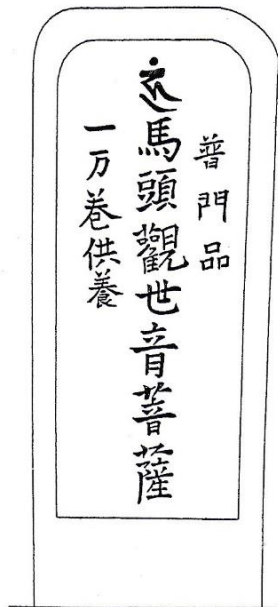 普門品
馬頭觀世音菩薩
一万巻供養